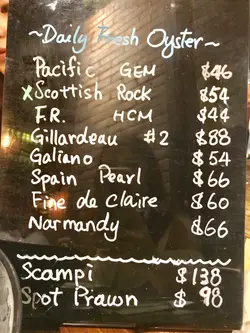 ~Daily Fresh Oyster~
Pacific GEM $46
xScottish Rock $54
F.R. HCM $44
Gillardeau #2 $88
Galiano $54
Spain Pearl $66
Fine de Claire $60
Normandy $66
Scampi $138
Spot Prawn $98